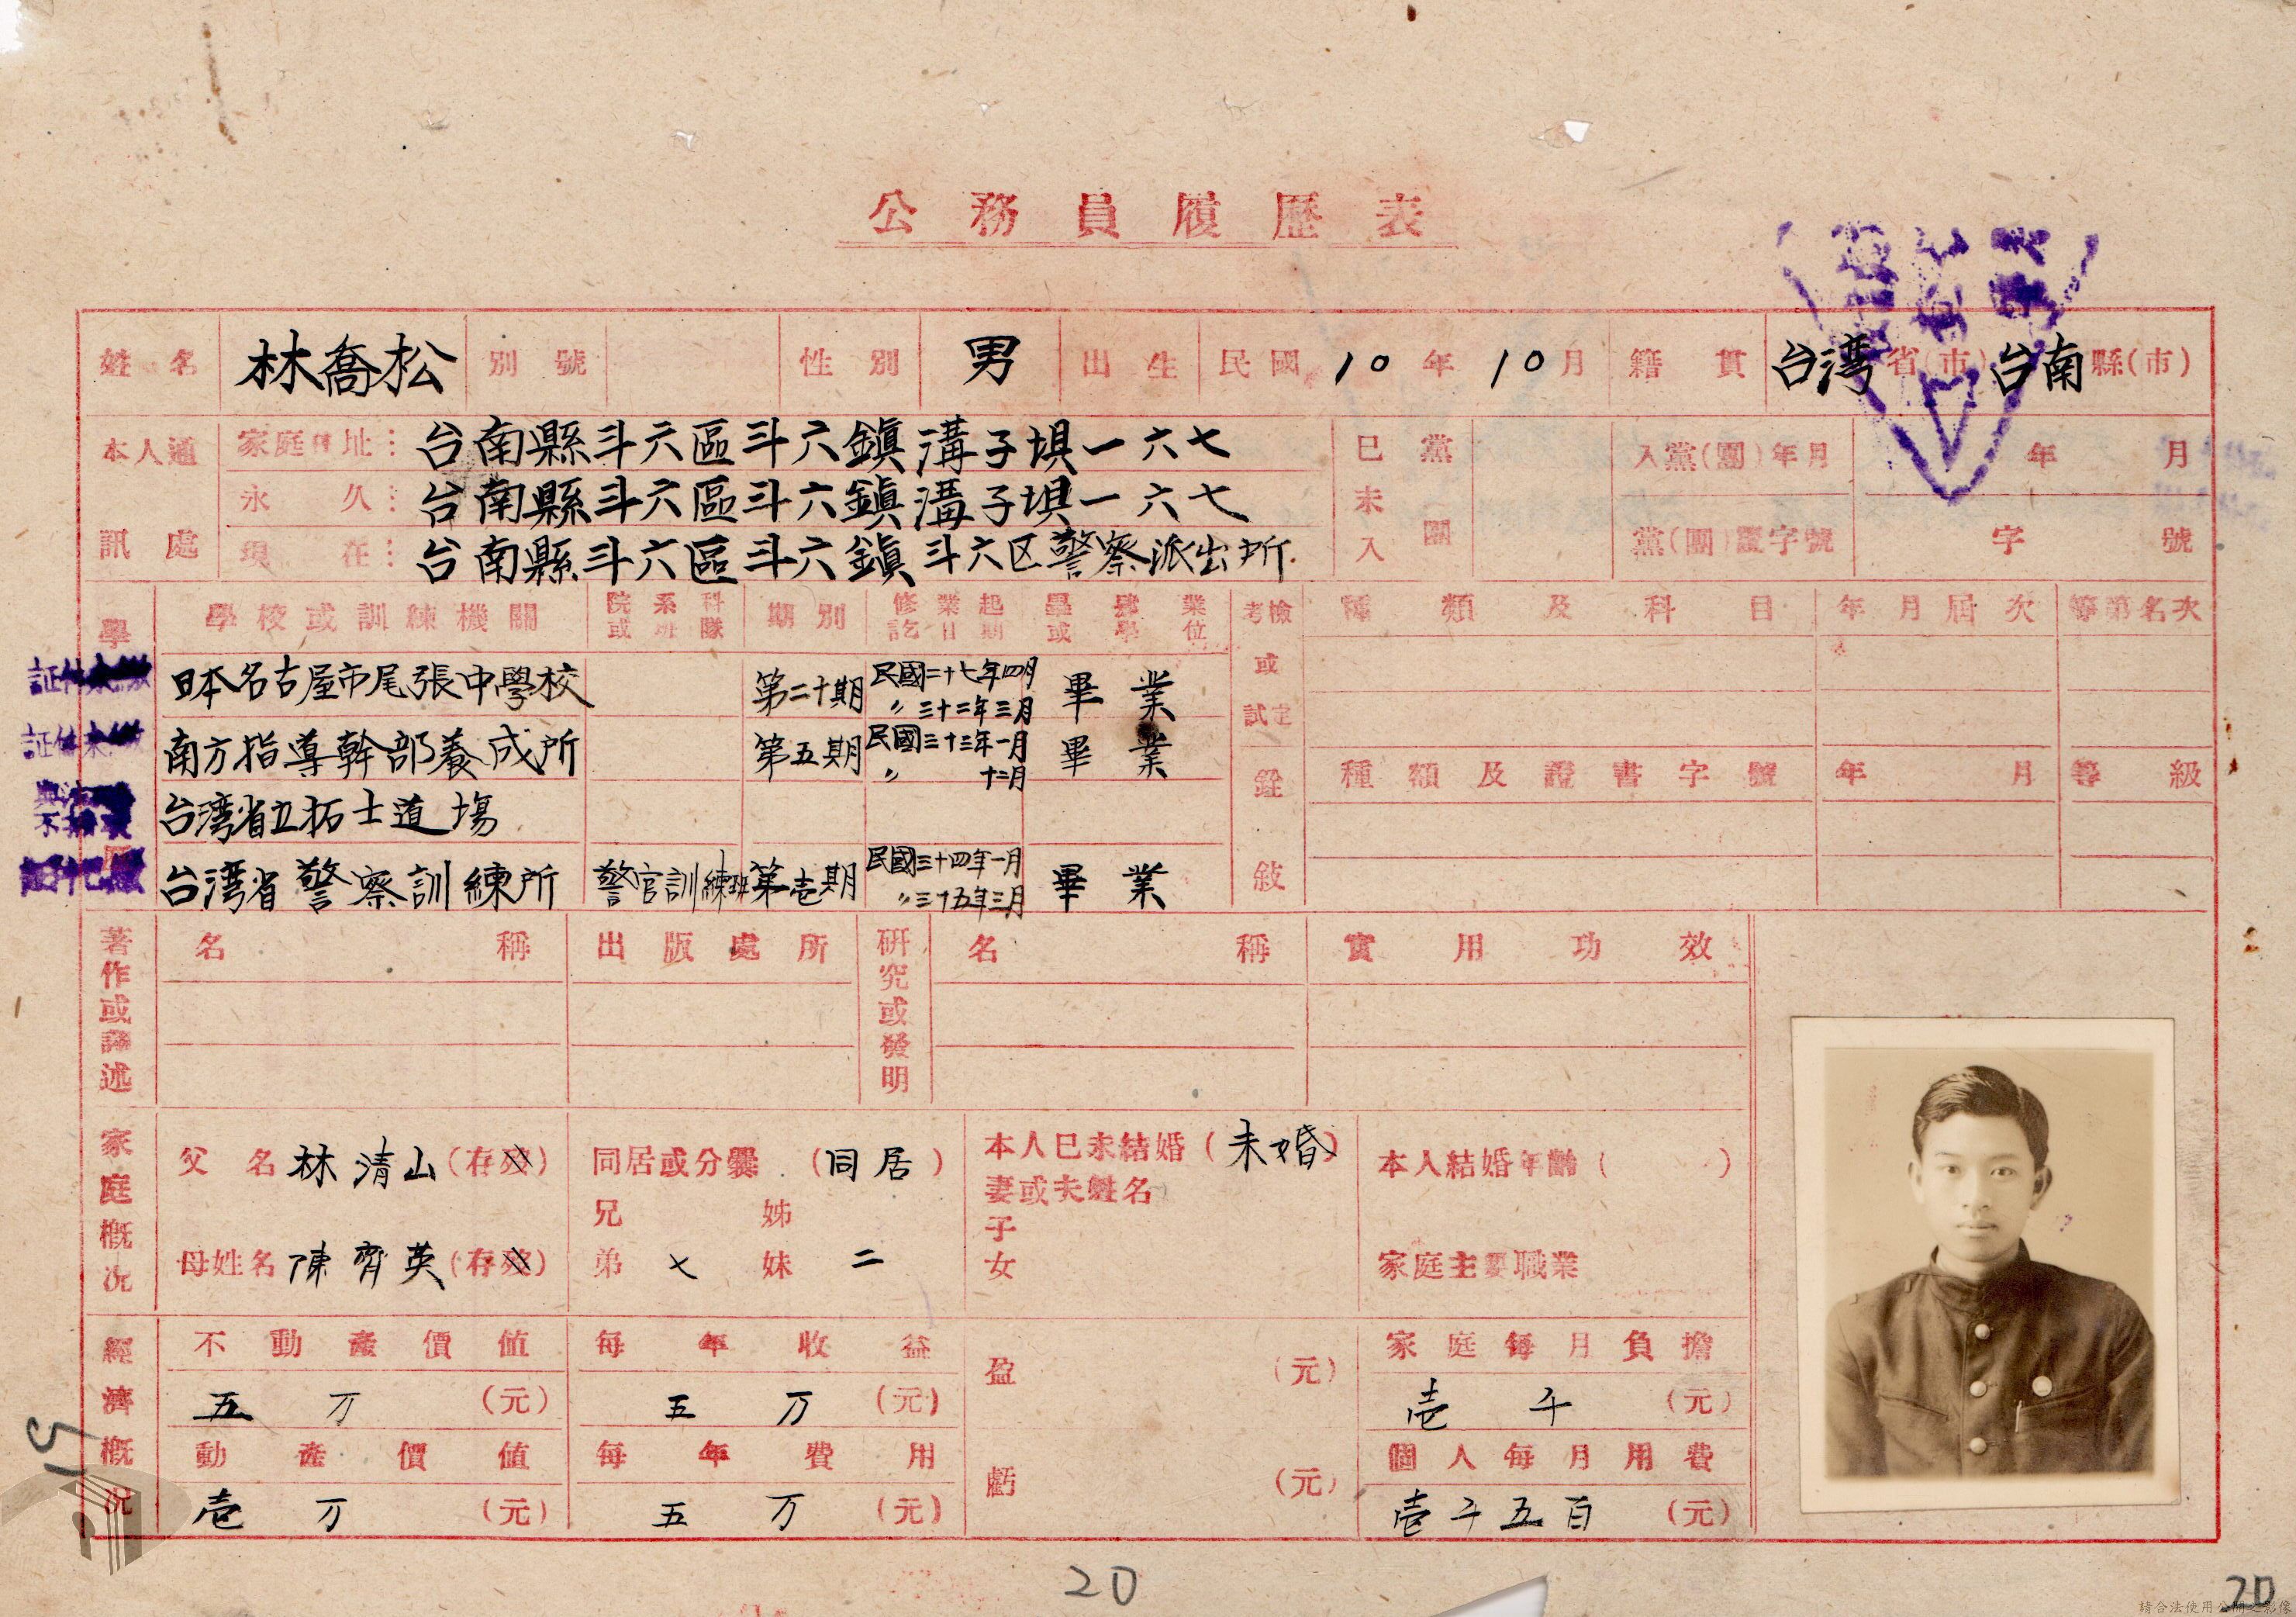 公務員履歷表
姓名 林喬松 別號 性別 男 出生 民國10年10月 籍貫 台湾省(市)台南縣(市)
本人通訊處
家庭住址： 台南縣斗六區斗六鎮溝子埧一六七
永久： 台南縣斗六區斗六鎮溝子埧一六七
現在： 台南縣斗六區斗六鎮斗六区警察派出所
已未入黨團 入黨(團)年月 年 月
黨(團)證字號 字 號
學歷 學校或訓練機關 院系科或班隊 期別 修業起訖日期 畢肄業或學位
日本名古屋市尾張中學校 第二十期 民國二十七年四月 〃三十二年三月 畢業
南方指導幹部養成所 第五期 民國三十三年一月 〃 十二月 畢業
台湾省立拓士道場
台湾省警察訓練所 警官訓練班 第壱期 民國三十四年一月 〃三十五年三月 畢業
考試或檢定 種類及科目 年月屆次 等第名次
銓敘 種類及證書字號 年月 等級
著作或譯述 名稱 出版處所
研究或發明 名稱 實用功效
家庭概況
父名 林清山(存歿) 同居或分爨(同居) 本人已未結婚(未婚) 本人結婚年齡( )
妻或夫姓名
兄 姊 子
母姓名 陳齊英(存歿) 弟 七 妹 二 女 家庭主要職業
經濟概況
不動產價值 每年收益 盈 (元) 家庭每月負擔
五万(元) 五万(元) 壱千(元)
動產價值 每年費用 虧 (元) 個人每月用費
壱万(元) 五万(元) 壱千五百(元)
15
20
20
請合法使用公開之影像